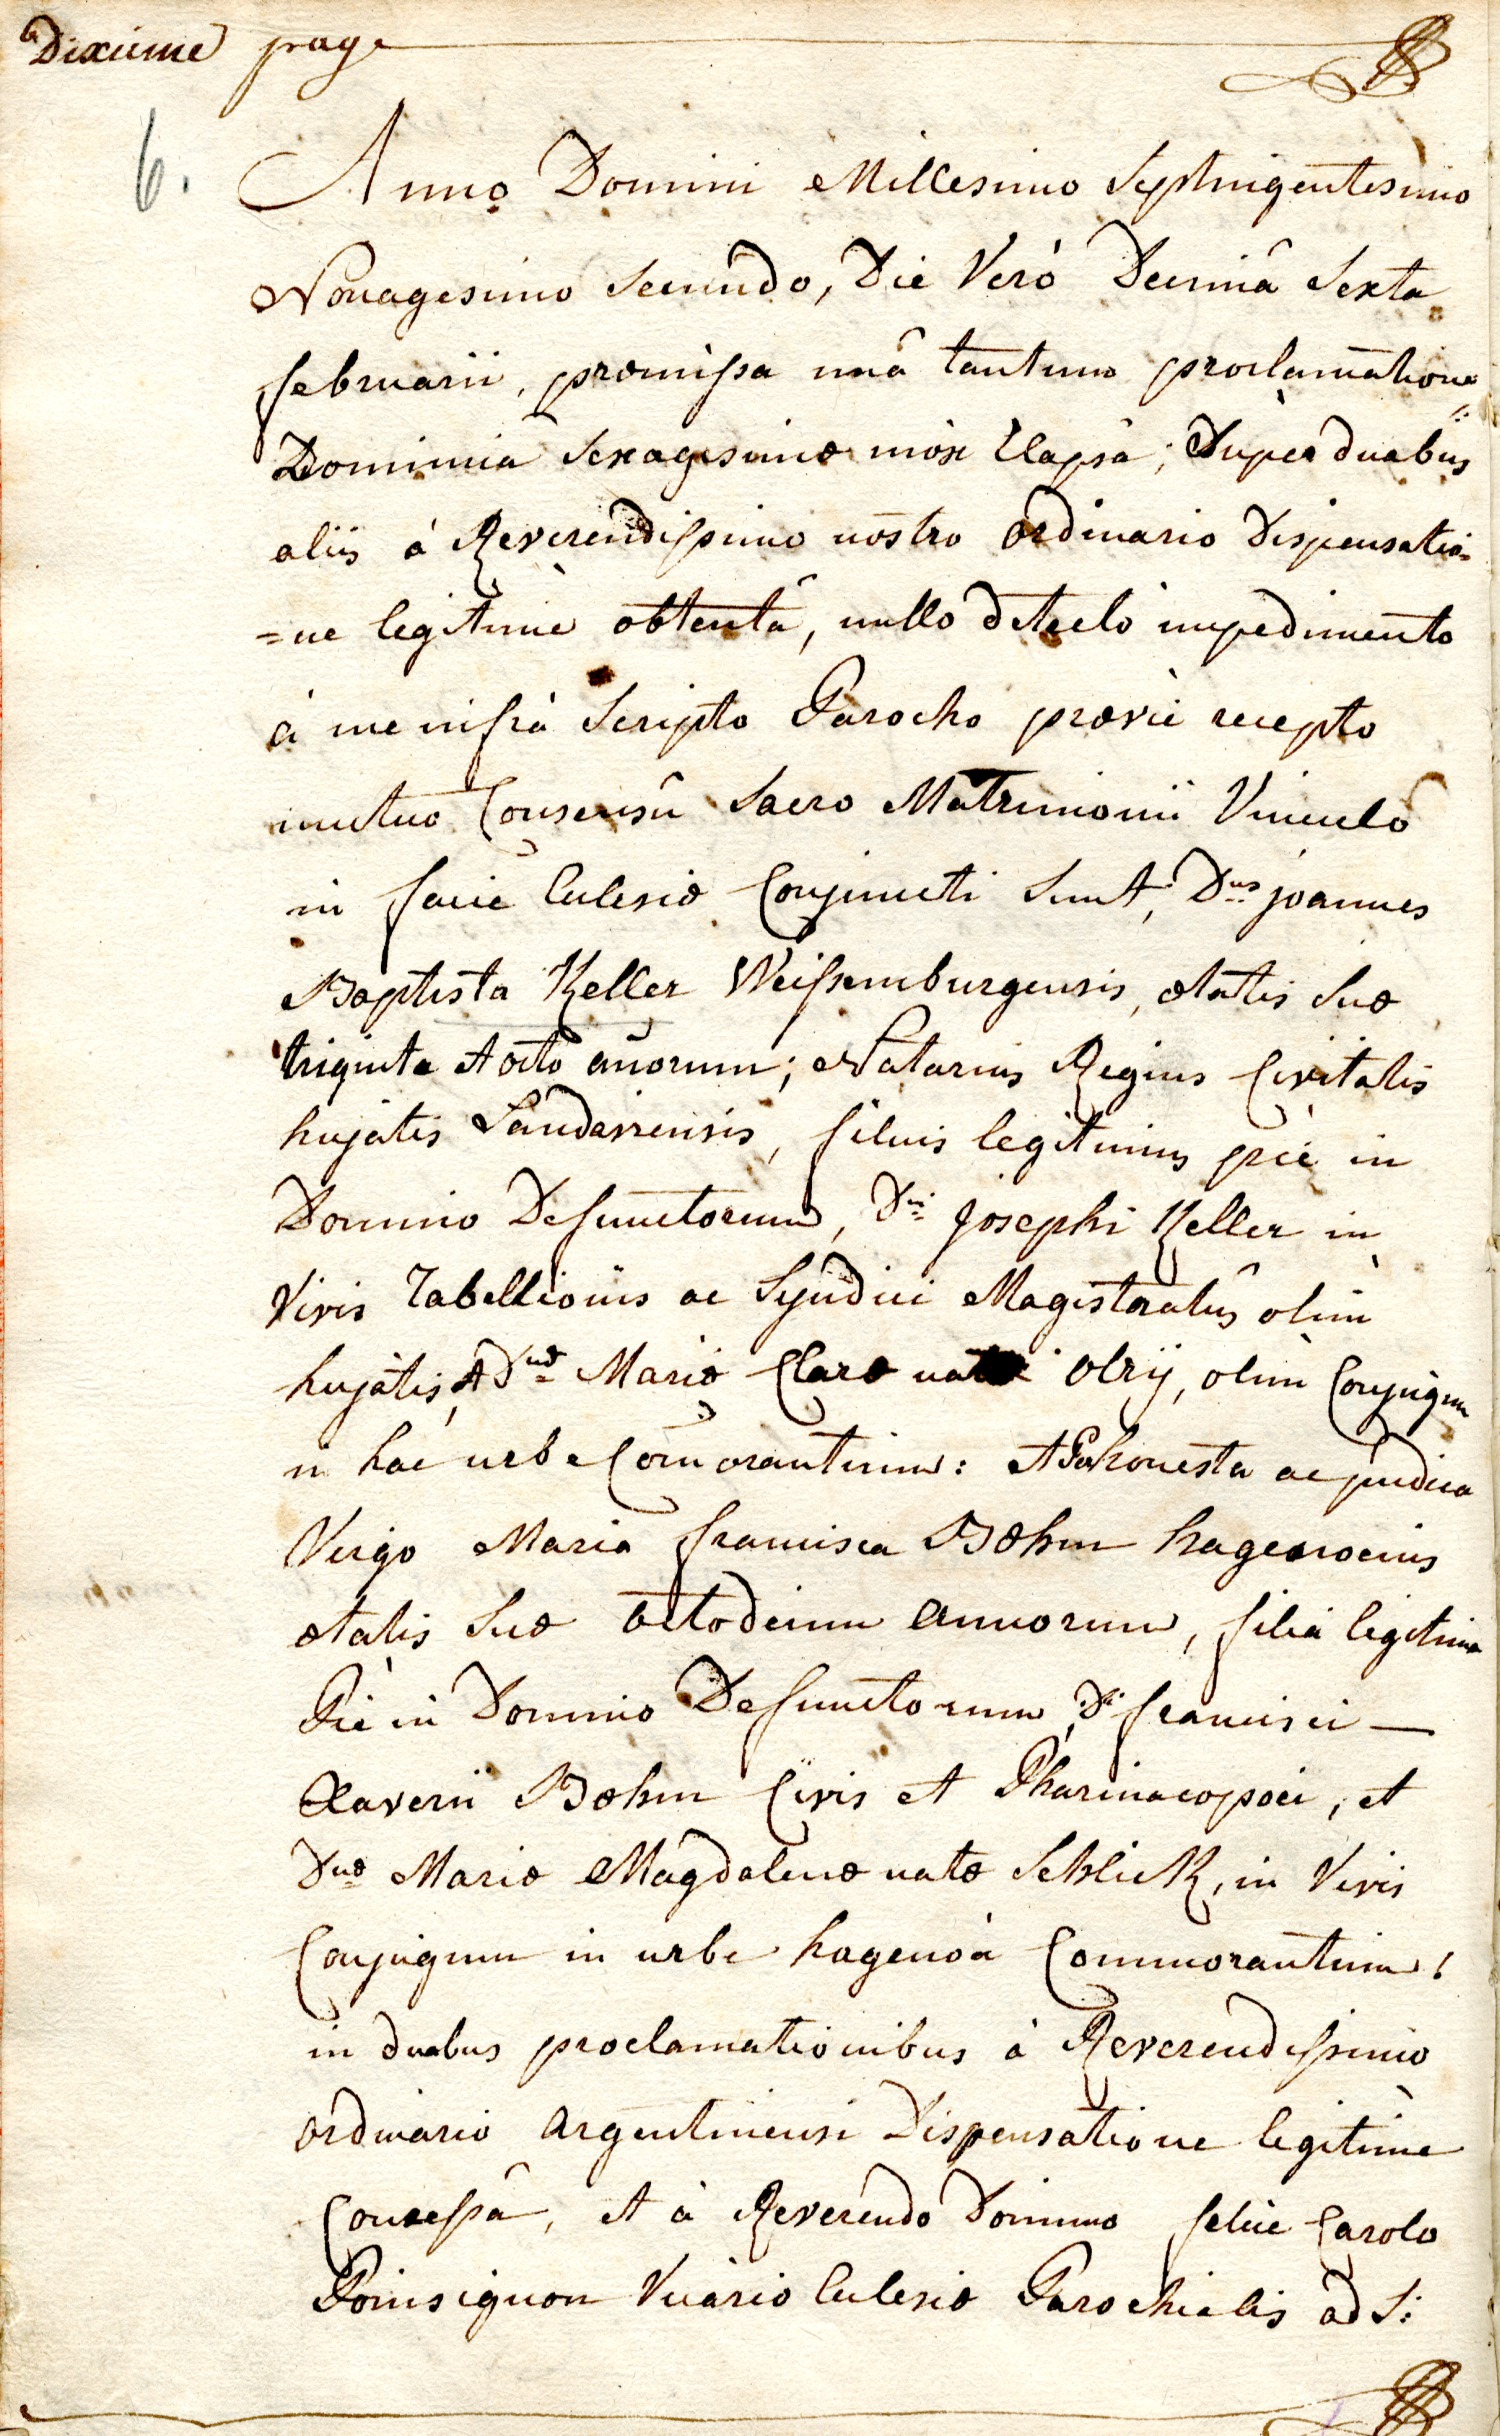 Dixiéme page
6.
Anno Domini Millesimo Septingentesimo
Nonagesimo Secundo, Die Verò Decimâ Sexta
februarii, præmissa unâ tantum proclamatione
Dominicâ Sexagesimæ mox Elapsâ; Super duabus
aliis à Reverendissimo nostro ordinario Dispensatio=
=ne legitimè obtentâ, nullo detecto impedimento
à me infrà Scripto Parocho prævie recepto
mutuo Consensû Sacro Matrimonii Vinculô
in facie Eclesiæ Conjuncti Sunt, Dnus joannes
Baptista Keller Weissemburgensis, ætatis Suæ
triginta et octo anorum; Notarius Regius Civitatis
hujatis Landaviensis, filius legitimus piè in
Domino Defunctorum, Dni josephi Keller in
Vivis Tabellionis ac Syndici Magistratûs olim
hujatis, et Dnæ Mariæ Claræ natæ olry, olim Conjugum
in hac urbe Comorantium: et honesta ac pudica
Virgo Maria francisca Bœhm hagenoensis
ætatis Suæ octodecim annorum, filia legitima
Piè in Domino Defunctorum, Di francisci —
Xaverii Bœhm Civis et Pharmacopœi, et
Dnæ Mariæ Magdalenæ natæ Schlick, in Vivis
Conjugum in urbe hagenoâ Commorantium:
in duabus proclamationibus à Reverendissimo
ordinario argentinensi Dispensatione legitime
Concessâ, et à Reverendo Domino felice Carolo
Poinsignon Vicario Eclesiæ Parochialis ad S: